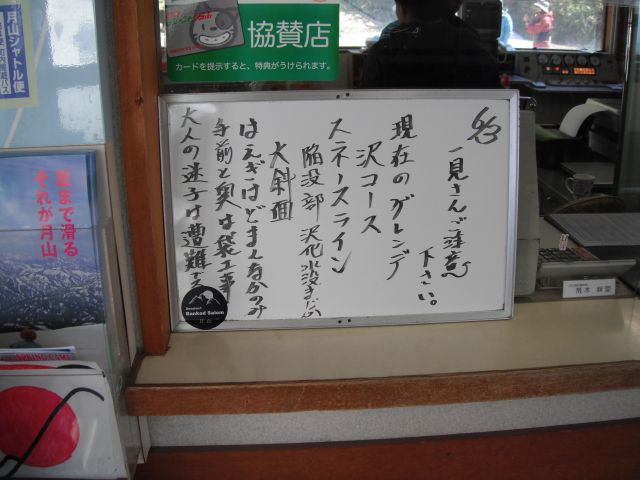 協賛店
カードを提示すると、特典がうけられます。
月山シャトル便
夏まで滑る
それが月山
6/3
一見さんご注意
下さい。
現在のゲレンデ
沢コース
スネースライン
陥没部 沢化 水没
大斜面
はえぎはどまんなかのみ
手前と奥は袋工事
大人の迷子は遭難
Bonked Salom
荒木
SPRING CAMP